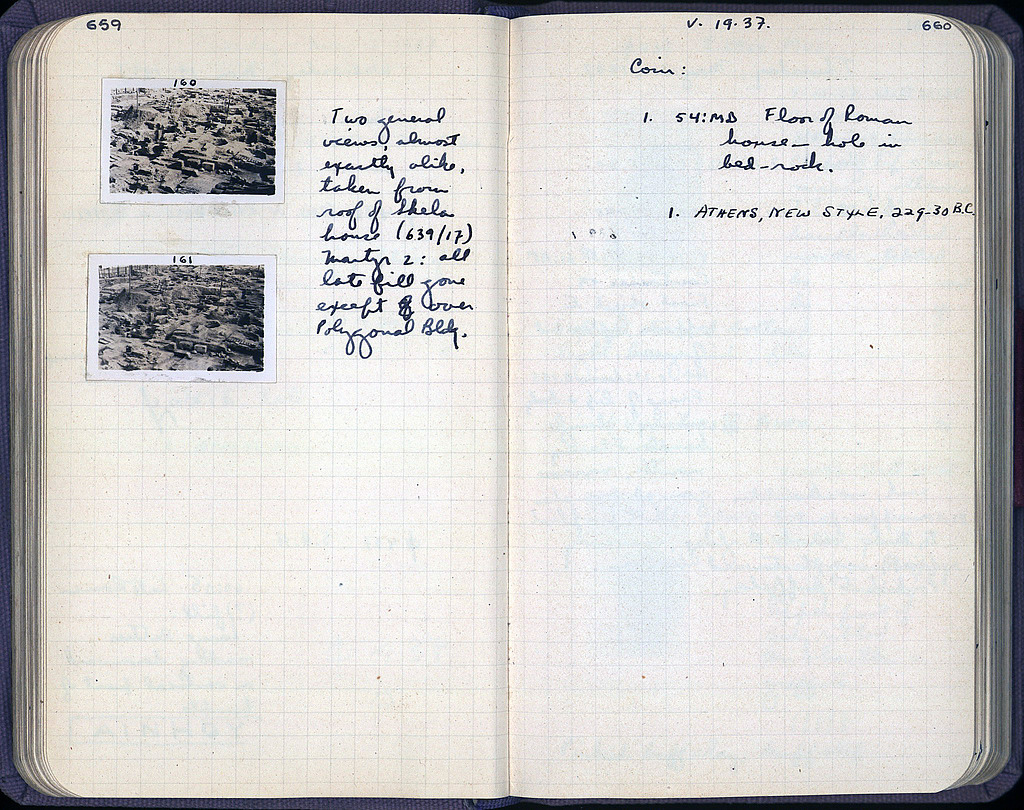 659
160
161
Two general
views, almost
exactly alike,
taken from
roof of Skela
house (639/17)
Martyr 2: all
late fill gone
except over
Polygonal Bldg.
V. 19.37.
660
Coin:
1. 54:MB Floor of Roman
house – hole in
bed-rock.
1. ATHENS, NEW STYLE, 229-30 B.C.